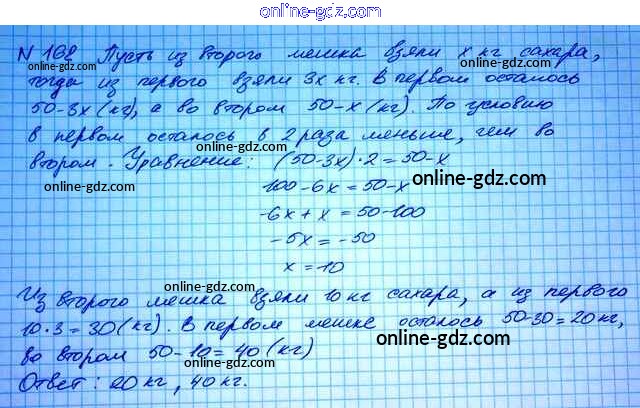 online-gdz.com
N 198 Пусть из второго мешка взяли x кг сахара,
тогда из первого взяли 3x кг. В первом осталось
50-3x (кг), а во втором 50-x (кг). По условию
в первом осталось в 2 раза меньше, чем во
online-gdz.com
втором. Уравнение: (50-3x)·2=50-x
online-gdz.com
online-gdz.com
100-6x=50-x
-6x+x=50-100
-5x=-50
x=10
online-gdz.com
Из второго мешка взяли 10 кг сахара, а из первого
online-gdz.com
10·3=30(кг). В первом мешке осталось 50-30=20кг,
во втором 50-10=40(кг)
online-gdz.com
Ответ: 20 кг, 40 кг.
online-gdz.com